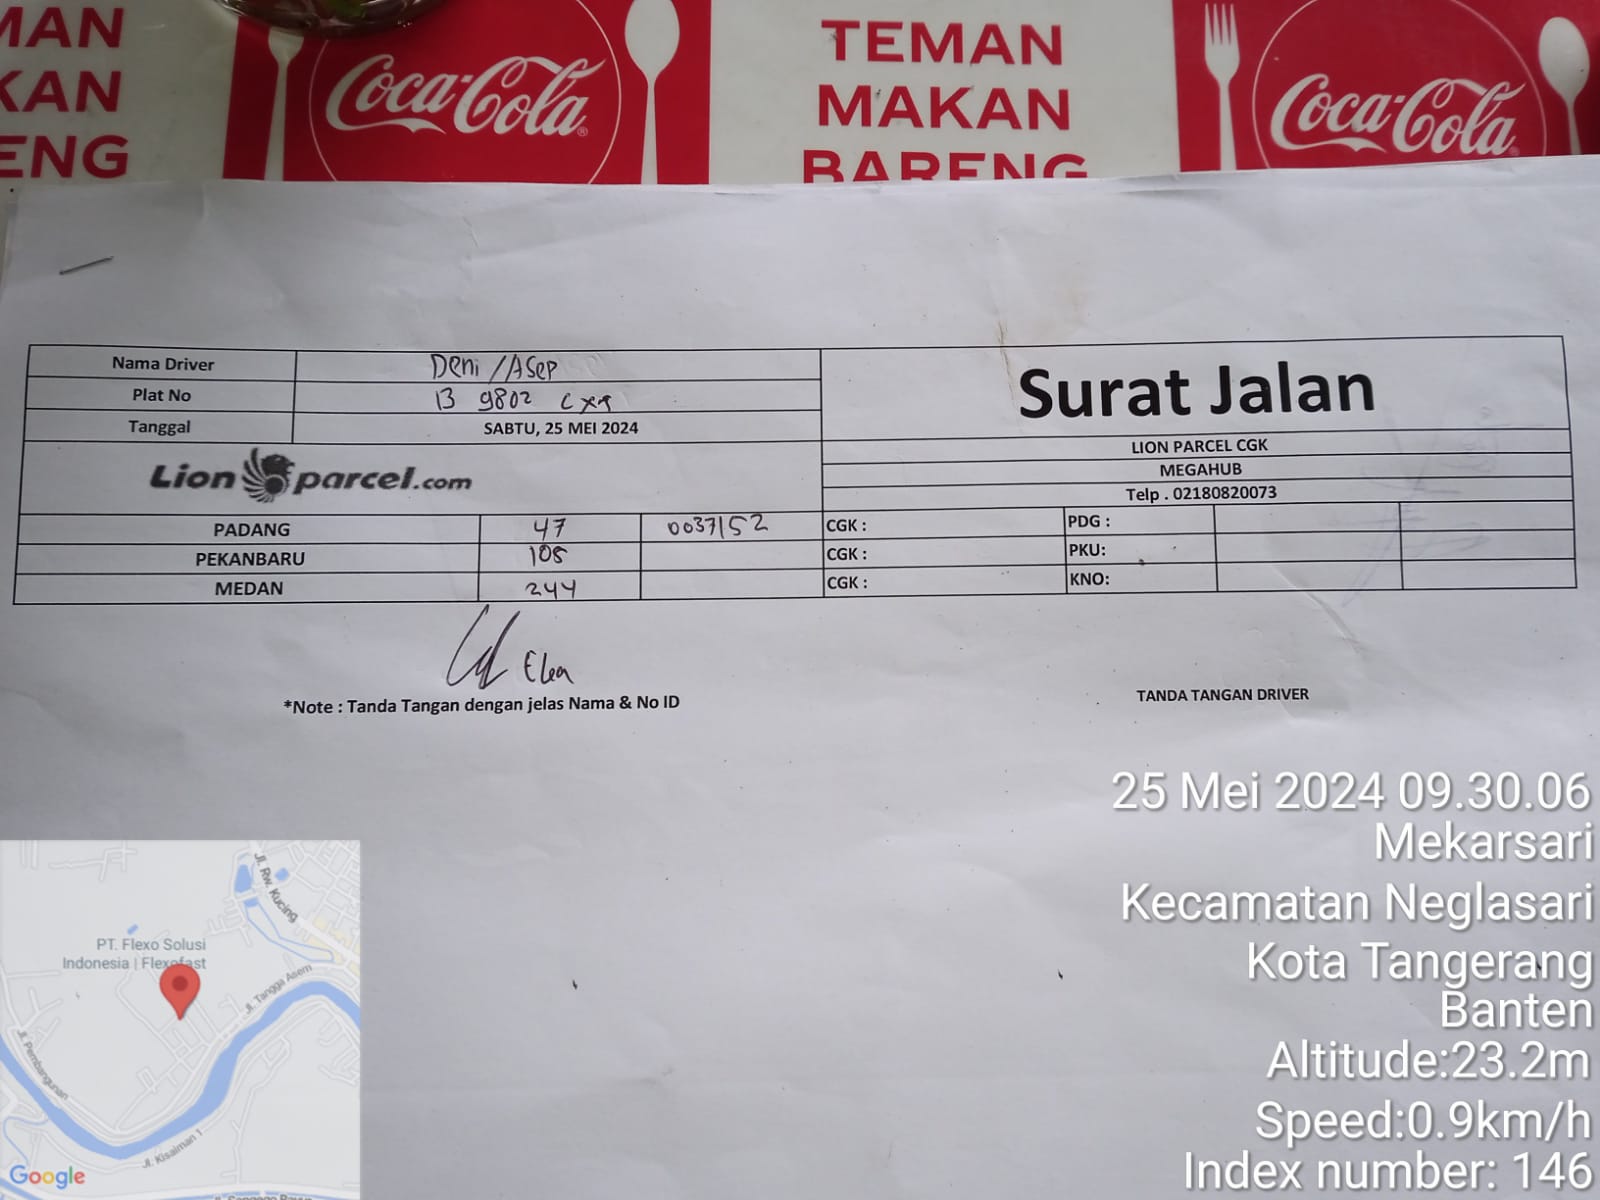 MAN
KAN
ENG
Coca-Cola
TEMAN
MAKAN
BARENG
Coca-Cola
Nama Driver Deni / Asep
Plat No B 9802
Tanggal SABTU, 25 MEI 2024
Surat Jalan
LION PARCEL CGK
MEGAHUB
Telp . 02180820073
Lion parcel.com
PADANG 47 0037152 CGK : PDG :
PEKANBARU 108 CGK : PKU:
MEDAN 244 CGK : KNO:
*Note : Tanda Tangan dengan jelas Nama & No ID
TANDA TANGAN DRIVER
25 Mei 2024 09.30.06
Mekarsari
Kecamatan Neglasari
Kota Tangerang
Banten
Altitude:23.2m
Speed:0.9km/h
Index number: 146
Jl. Rw. Kucing
PT. Flexo Solusi
Indonesia | Flexofast
Jl. Tangga Asem
Jl. Pembangunan
Jl. Kisaiman 1
Google